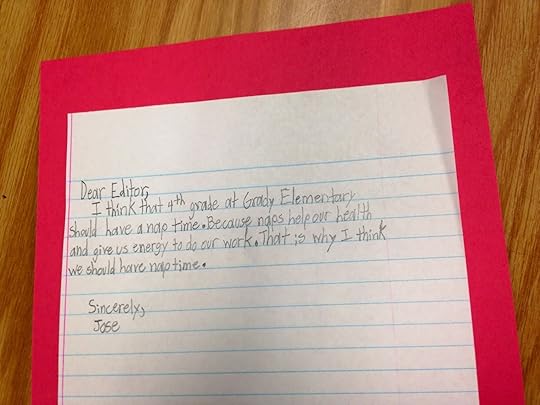 Dear Editor,
I think that 4th grade at Grady Elementary
should have a nap time. Because naps help our health
and give us energy to do our work. That is why I think
we should have nap time.
Sincerely,
Jose